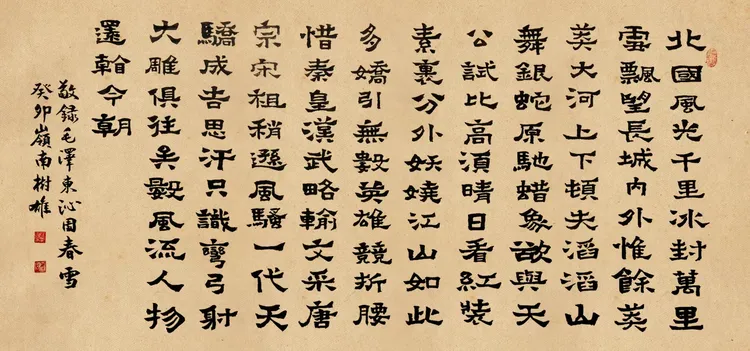 北國風光千里冰封萬里
雪飄望長城內外惟餘莽
莽大河上下頓失滔滔山
舞銀蛇原馳蜡象欲與天
公試比高須晴日看紅裝
素裹分外妖嬈江山如此
多嬌引無數英雄競折腰
惜秦皇漢武略輸文采唐
宗宋祖稍遜風騷一代天
驕成吉思汗只識彎弓射
大雕俱往矣數風流人物
還看今朝
敬錄毛澤東沁園春雪
癸卯嶺南樹雄